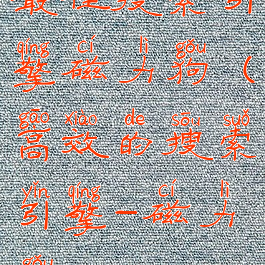 最 搜索引
qíng cí lì gǒu
擎磁力狗(
gāo xiào de sōu suǒ
高效的搜索
yǐn qíng cí lì
引擎-磁力
gǒu